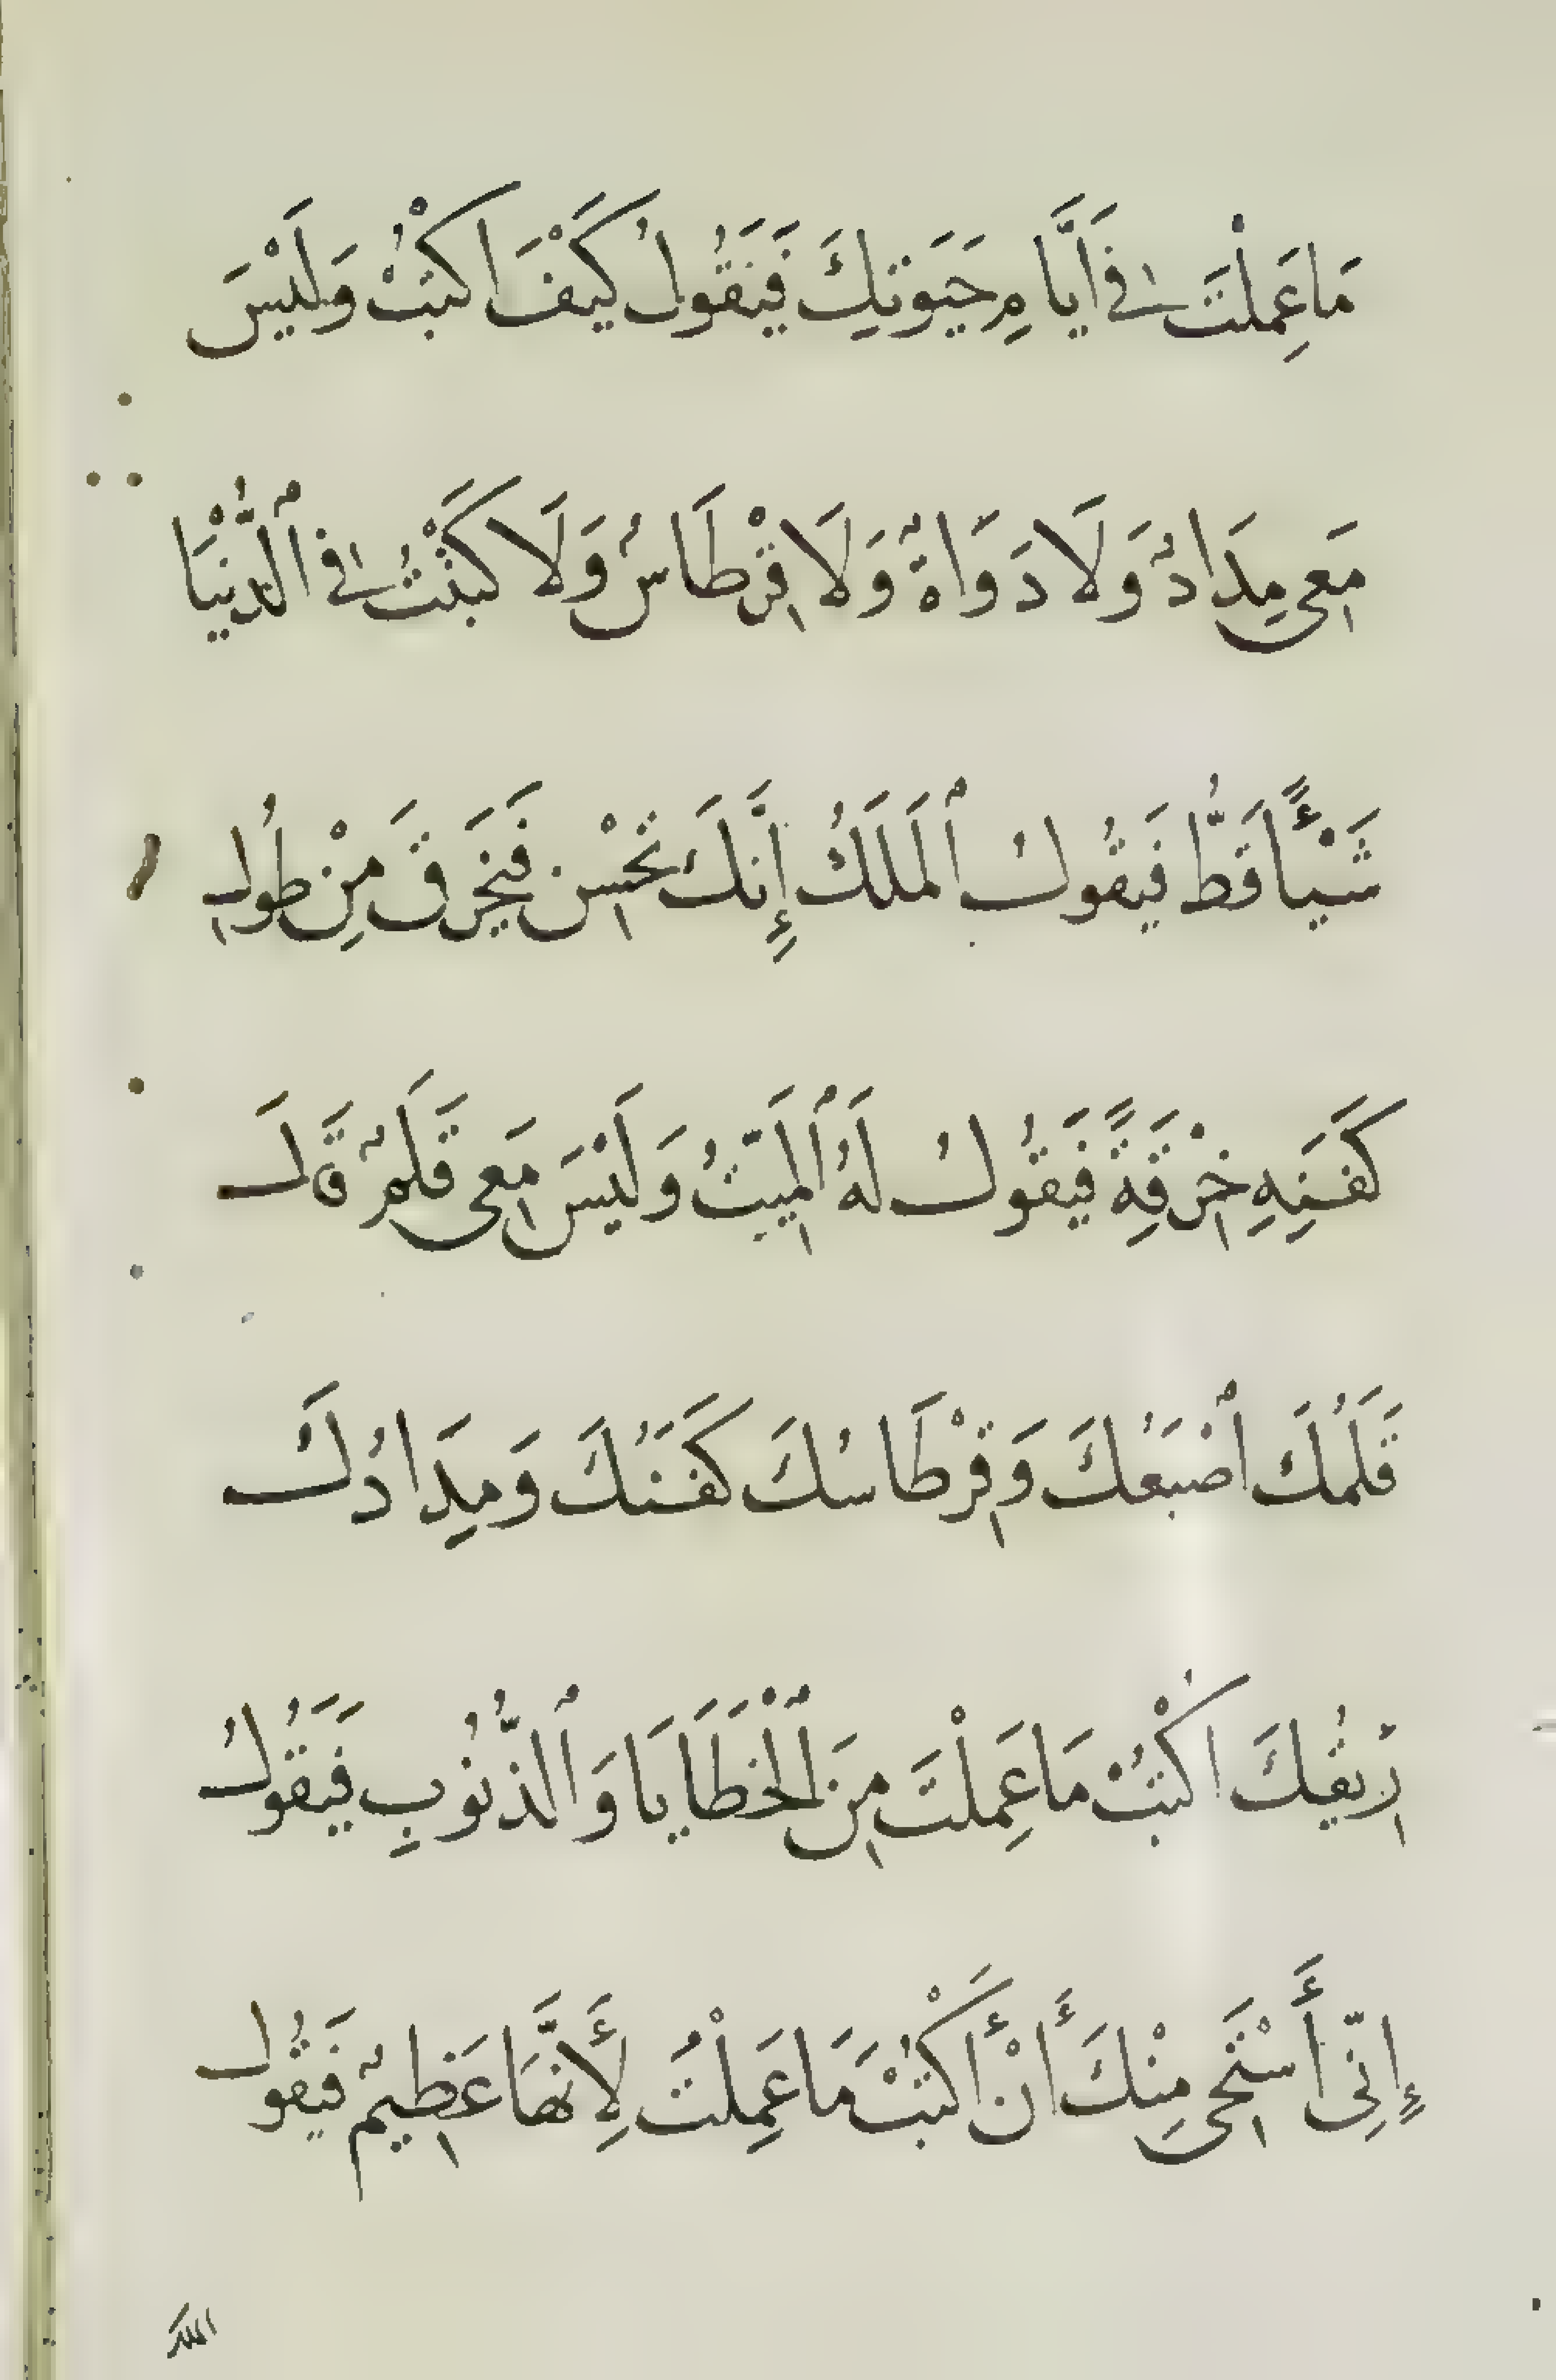 مَا عَمِلْتَ فِي أَيَّامِ حَيَوتِكَ فَيَقُولُ كَيْفَ اكْتُبْ وَلَيْسَ
مَعِى مِدَادٌ وَلَا دَوَاةٌ وَلَا قِرْطَاسٌ وَلَا كَتَبْتُ فِي ٱلدُّنْيَا
شَيْـًٔا قَطُّ فَيَقُولُ ٱلْمَلَكُ إِنَّكَ تُحْسِن فَيَخْرِقَ مِنْ طُولِ
كَفَنِهِ خِرْقَةً فَيَقُولُ لَهُ ٱلْمَيِّتُ وَلَيْسَ مَعِى قَلَمٌ قَالَ
قَلَمُكَ اُصْبَعُكَ وَقِرْطَاسُكَ كَفَنُكَ وَمِدَادُكَ
رِيقُكَ اكْتُبْ مَا عَمِلْتَ مِنَ ٱلْخَطَايَا وَٱلذُّنُوبِ فَيَقُولُ
إِنِّى أَسْتَحِى مِنْكَ أَنْ أَكْتُبَ مَا عَمِلْتُ لِأَنَّهَا عَظِيمٌ فَيَقُولُ
الملك